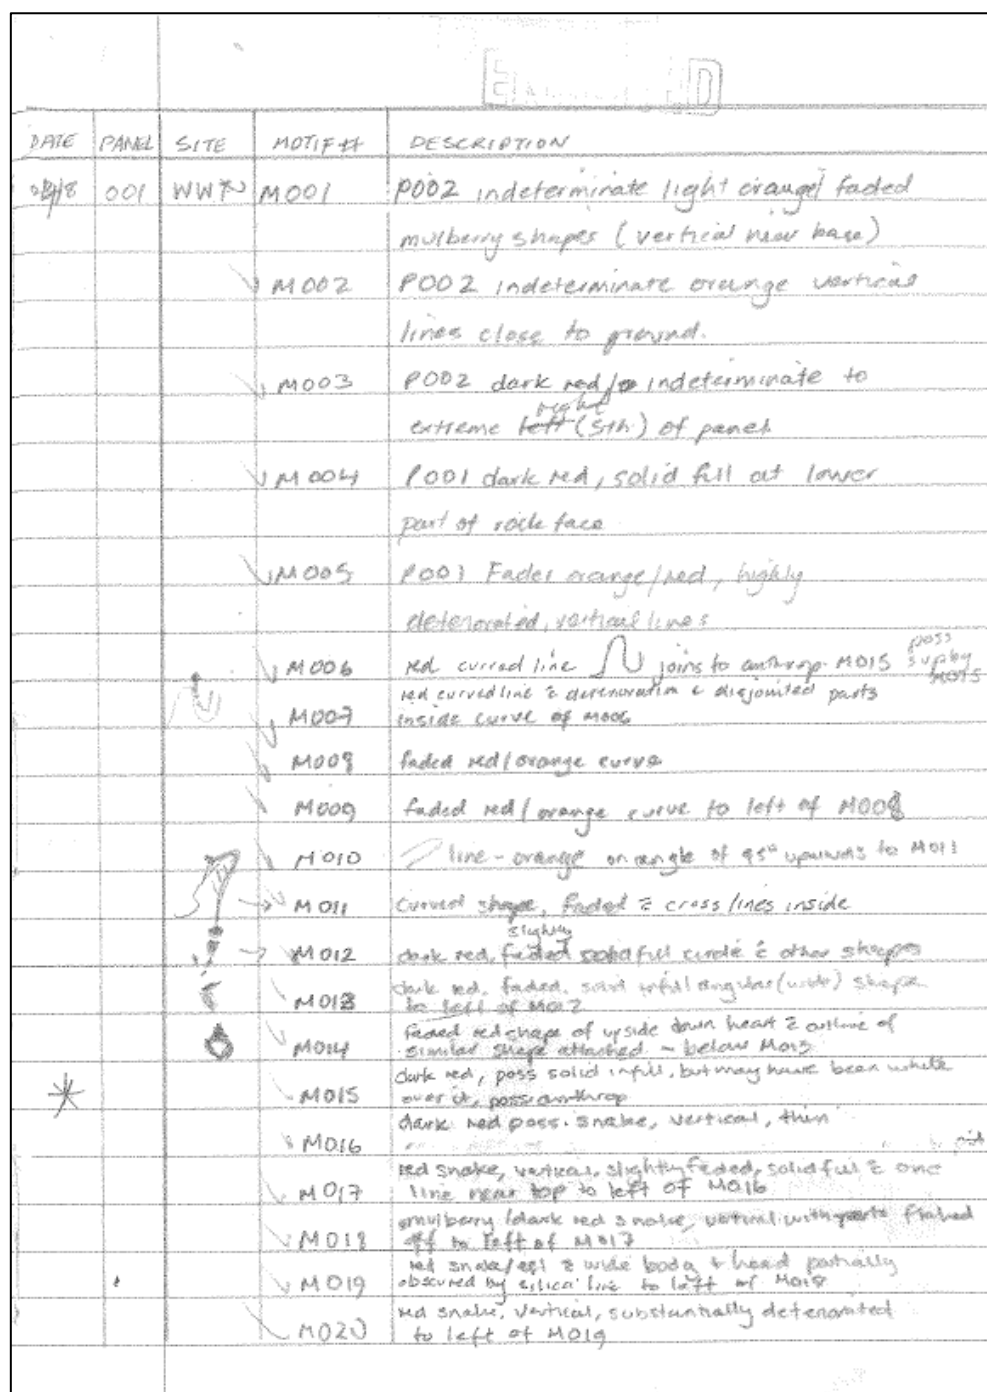 DATE PANEL SITE MOTIF# DESCRIPTION
001 WWTN M001 P002 indeterminate light orange/ faded
mulberry shapes (vertical near base)
M002 P002 indeterminate orange vertical
lines close to ground.
M003 P002 dark red/ indeterminate to
right
extreme left (sth) of panel
M004 P001 dark red, solid full at lower
part of rock face
M005 P001 Faded orange/red, highly
deteriorated, vertical lines
poss
M006 red curved line joins to anthrop. M015 supby
M015
red curved line & deterioration & disjointed parts
M007 inside curve of M006
M008 faded red/orange curve
M009 faded red/orange curve to left of M008
M010 line - orange on angle of 45° upwards to M011
M011 curved shape, faded & cross lines inside
slightly
M012 dark red, faded solid full circle & other shapes
dark red, faded, solid infill angular (wide) shape
M013 to left of M012
faded red shape of upside down heart & outline of
M014 similar shape attached - below M013
dark red, poss solid infill, but may have been white
M015 over it, poss anthrop
dark red poss. snake, vertical, thin
M016
red snake, vertical, slightly faded, solid full & one
M017 line near top to left of M016
mulberry/dark red snake, vertical with parts flaked
M018 off to left of M017
red snake/eel & wide body & head partially
M019 obscured by silica line to left of M018
red snake, vertical, substantially deteriorated
M020 to left of M019